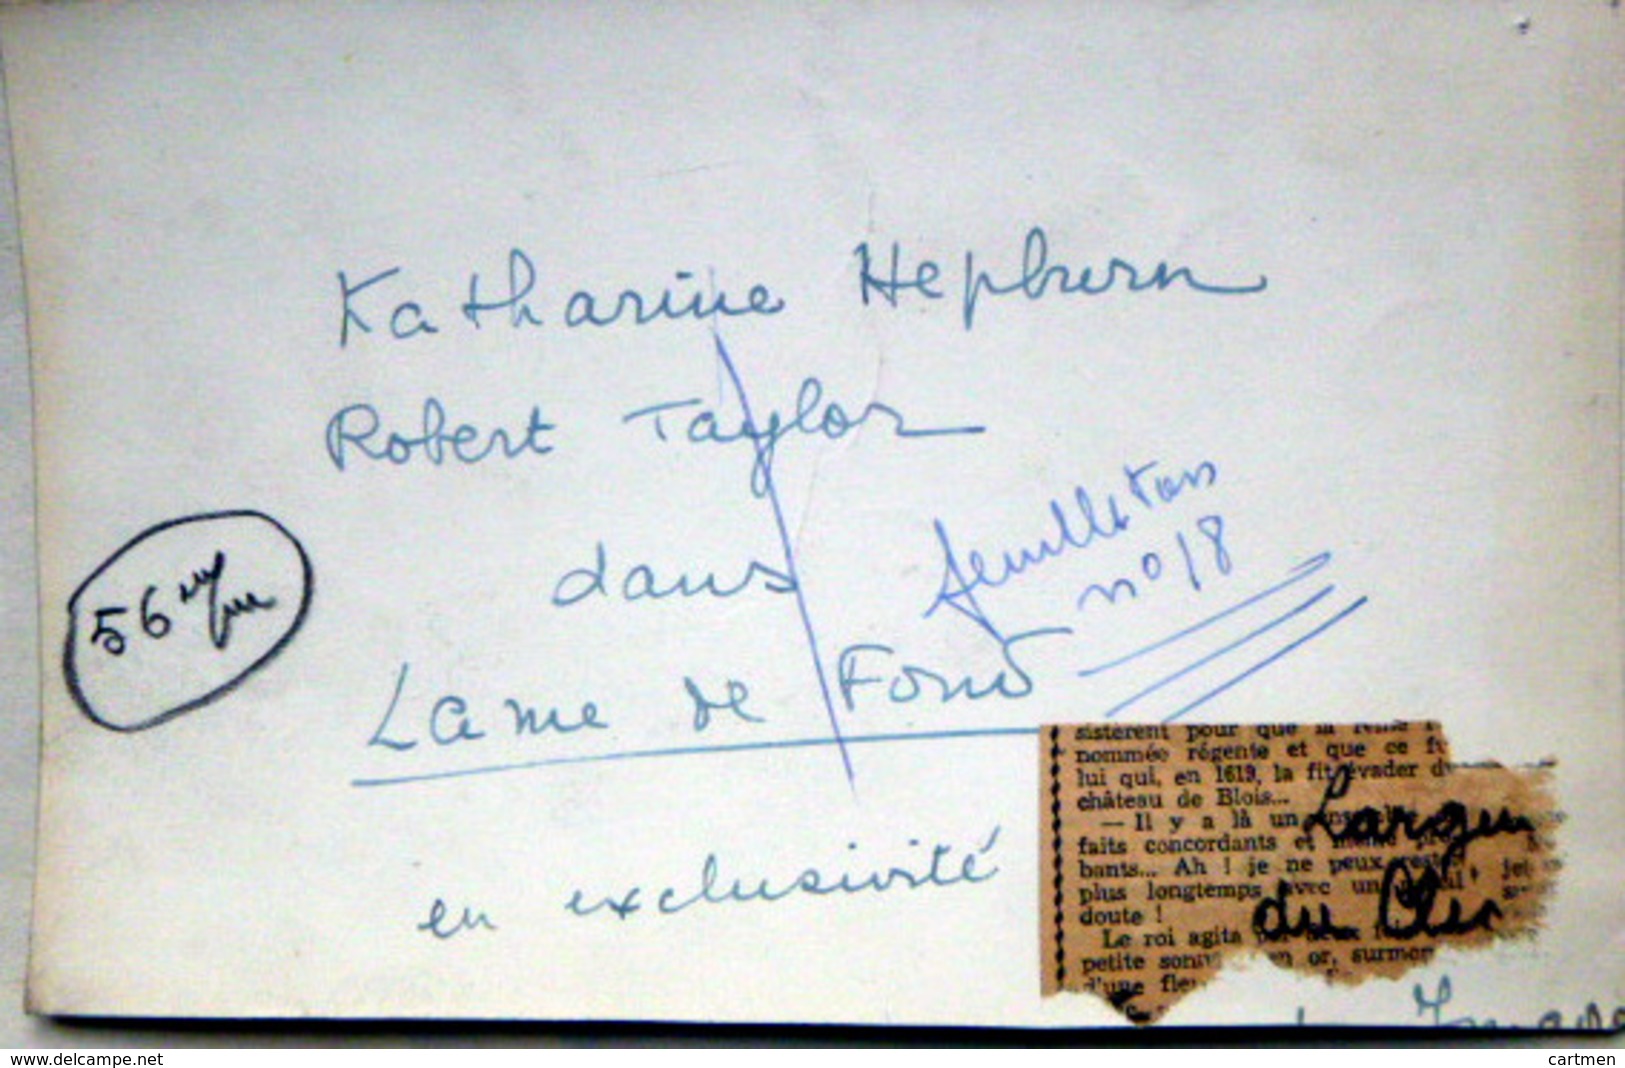 Katharine Hepburn
Robert Taylor
dans
feuilleton
n° 18
56 m/m
Lame de Fond
en exclusivité
sistèrent pour que la reine
nommée régente et que ce
lui qui, en 1619, la fit évader
château de Blois...
— Il y a là un
faits concordants et même
bants... Ah ! je ne peux
plus longtemps avec un
doute !
Le roi agita
petite en or,
d'une
du
www.delcampe.net
cartmen